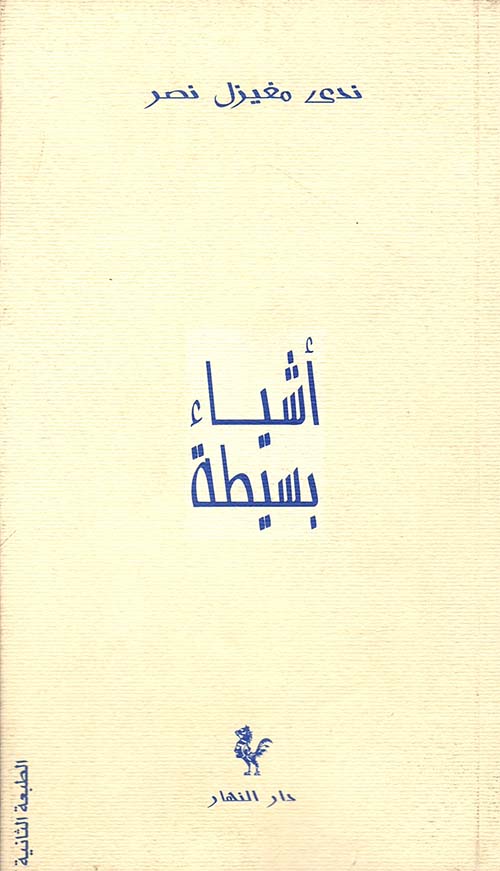 ندى مغيزل نصر
أشياء
بسيطة
دار النهار
الطبعة الثانية